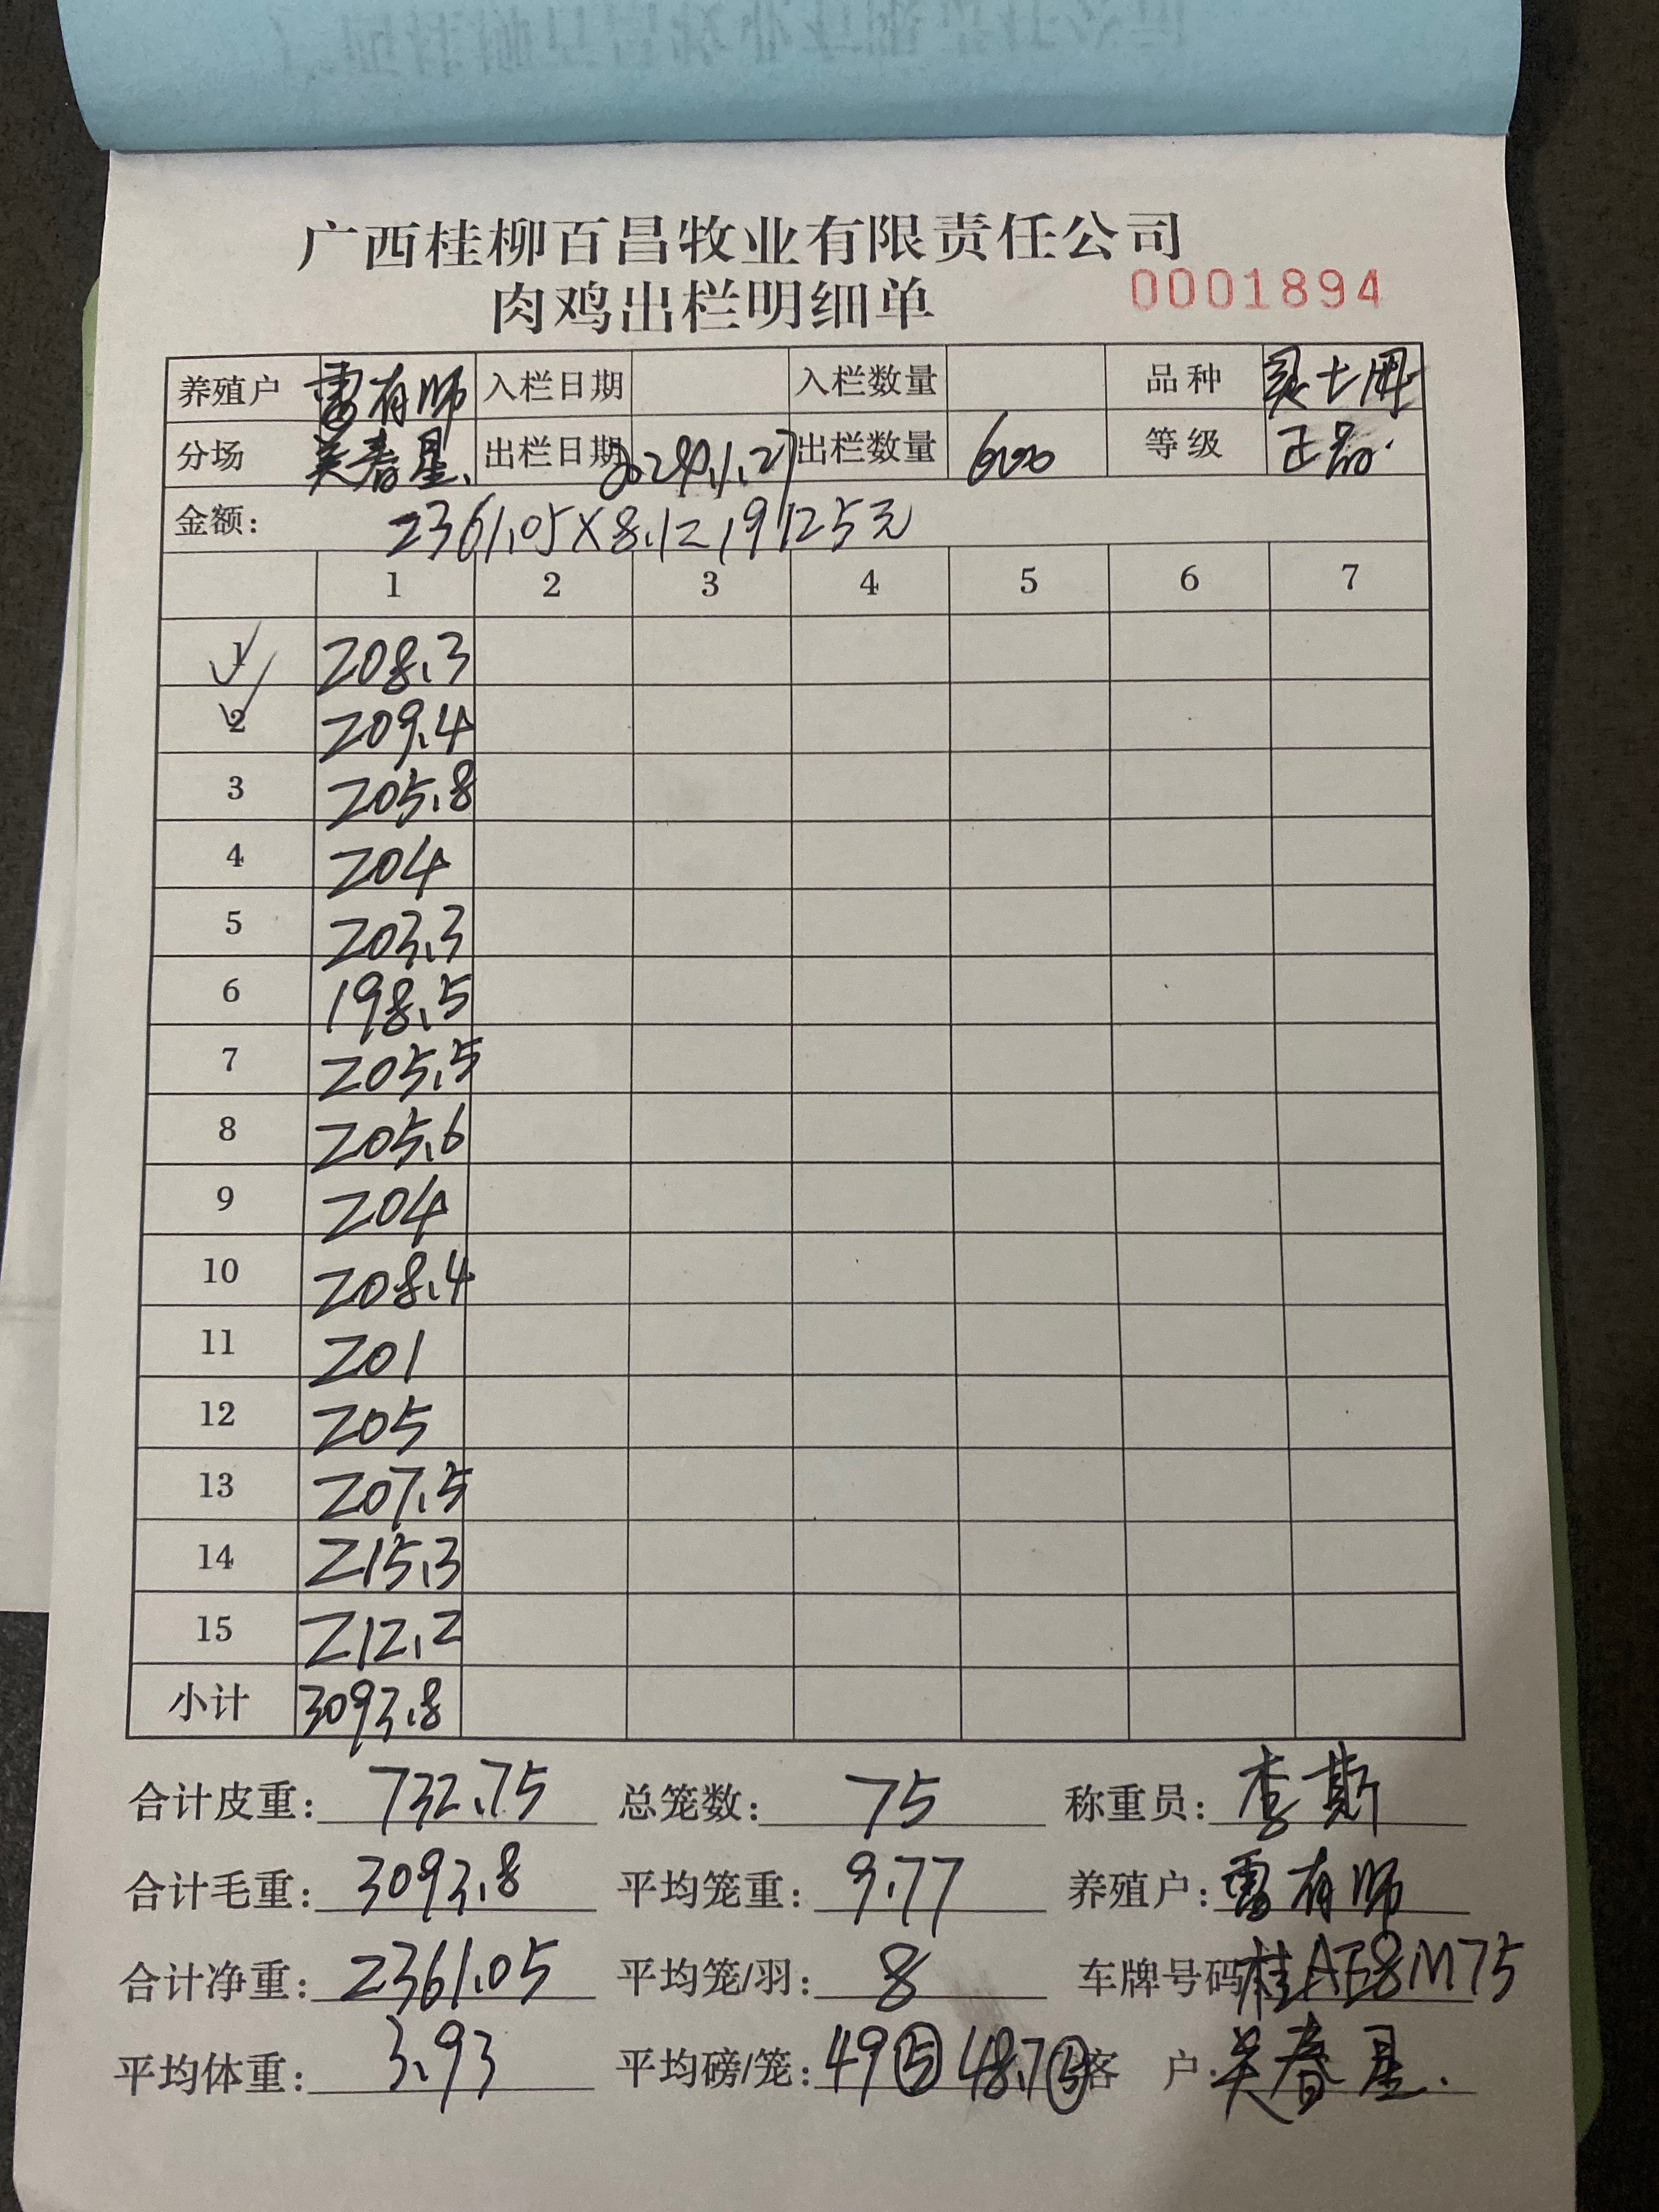 广西桂柳百昌牧业有限责任公司
肉鸡出栏明细单 0001894
养殖户 雷有师 入栏日期 入栏数量 品种
分场 吴春星. 出栏日期 出栏数量 600 等级 正品.
金额: 2361.05×8.1=19125元
1 2 3 4 5 6 7
1 208.3
2 209.4
3 205.8
4 204
5 203.3
6 198.5
7 205.5
8 205.6
9 204
10 208.4
11 201
12 205
13 207.5
14 215.3
15 212.2
小计 3093.8
合计皮重: 732.75 总笼数: 75 称重员: 李斯
合计毛重: 3093.8 平均笼重: 9.77 养殖户: 雷有师
合计净重: 2361.05 平均笼/羽: 8 车牌号码 桂AE8M75
平均体重: 3.93 平均磅/笼: 49⑤ 48.7⑤ 客 户: 吴春星.